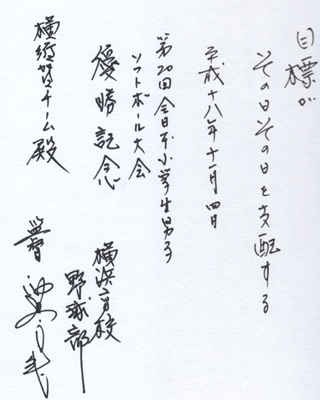 目標が
その日その日を支配する
平成十八年十一月四日
第20回全日本小学生男子
ソフトボール大会
優勝記念
横須賀チーム殿
横浜高校
野球部
監督